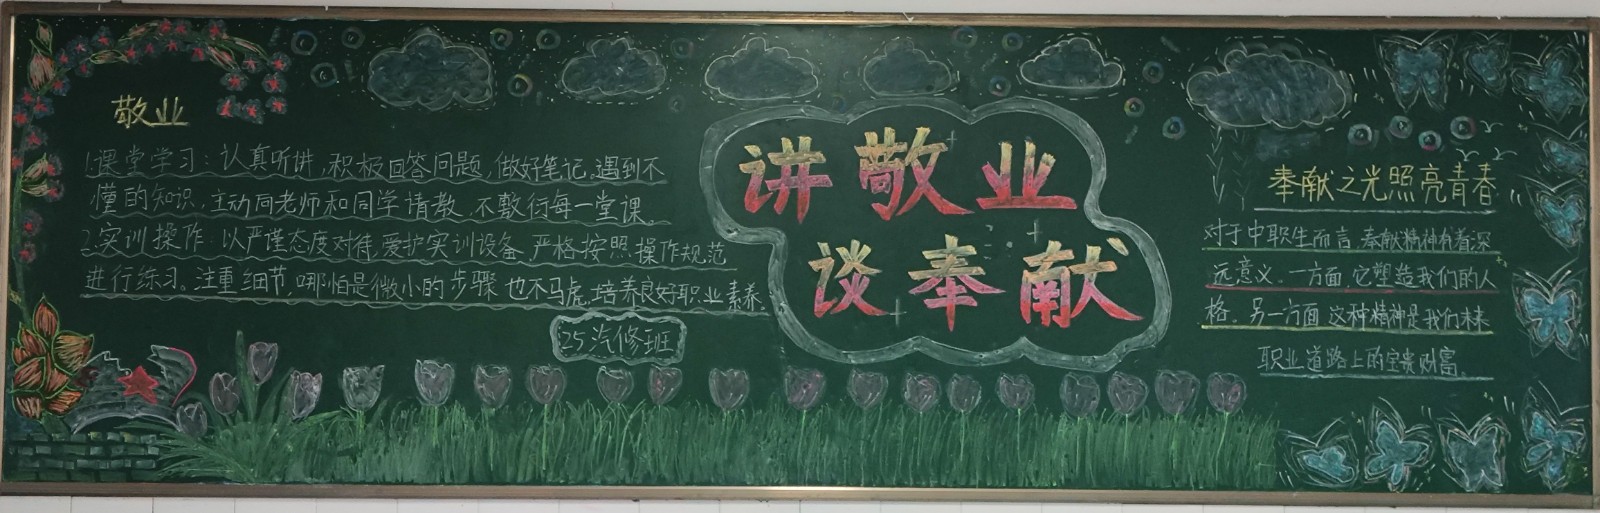 敬业
1.课堂学习：认真听讲，积极回答问题，做好笔记。遇到不
懂的知识，主动向老师和同学请教，不敷衍每一堂课。
2.实训操作：以严谨态度对待，爱护实训设备，严格按照操作规范
进行练习。注重细节，哪怕是微小的步骤也不马虎，培养良好职业素养。
25汽修班
讲敬业
谈奉献
奉献之光照亮青春
对于中职生而言，奉献精神有着深
远意义。一方面，它塑造我们的人
格。另一方面，这种精神是我们未来
职业道路上的宝贵财富。